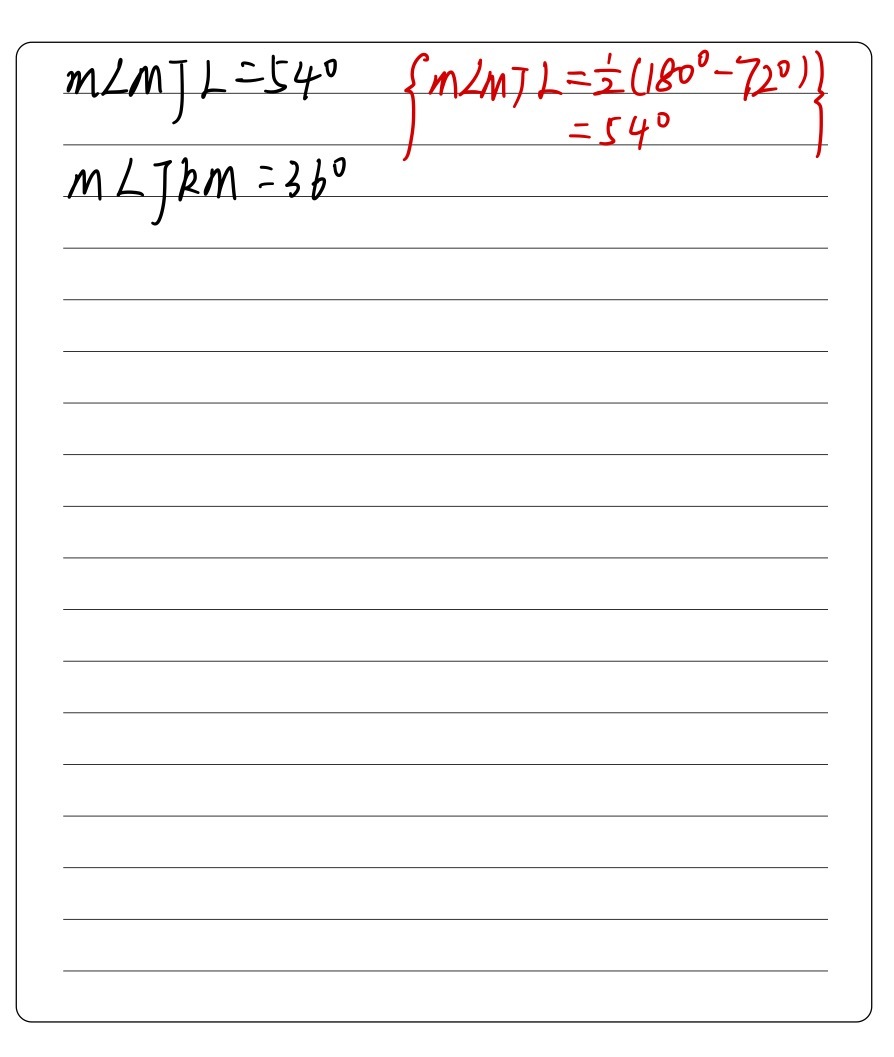 m∠MJL=54°
{m∠MJL=½(180°-72°)
=54°}
m∠JKM=36°